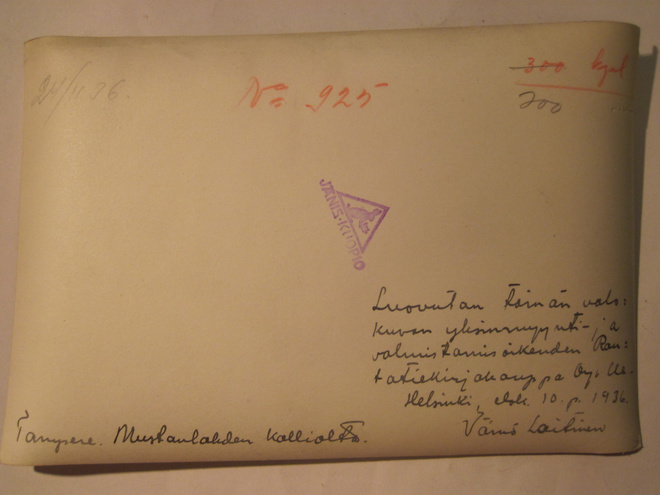 24/11 36.
No 925
300 kpl
200
JÄNIS-KUOPIO
Luovutan tämän valo-
kuvan yksinmyynti- ja
valmistamisoikeuden Rau-
tatiekirjakauppa Oy:lle.
Helsinki, elok. 10. p. 1936.
Väinö Laitinen
Tampere. Mustanlahden kalliolta.